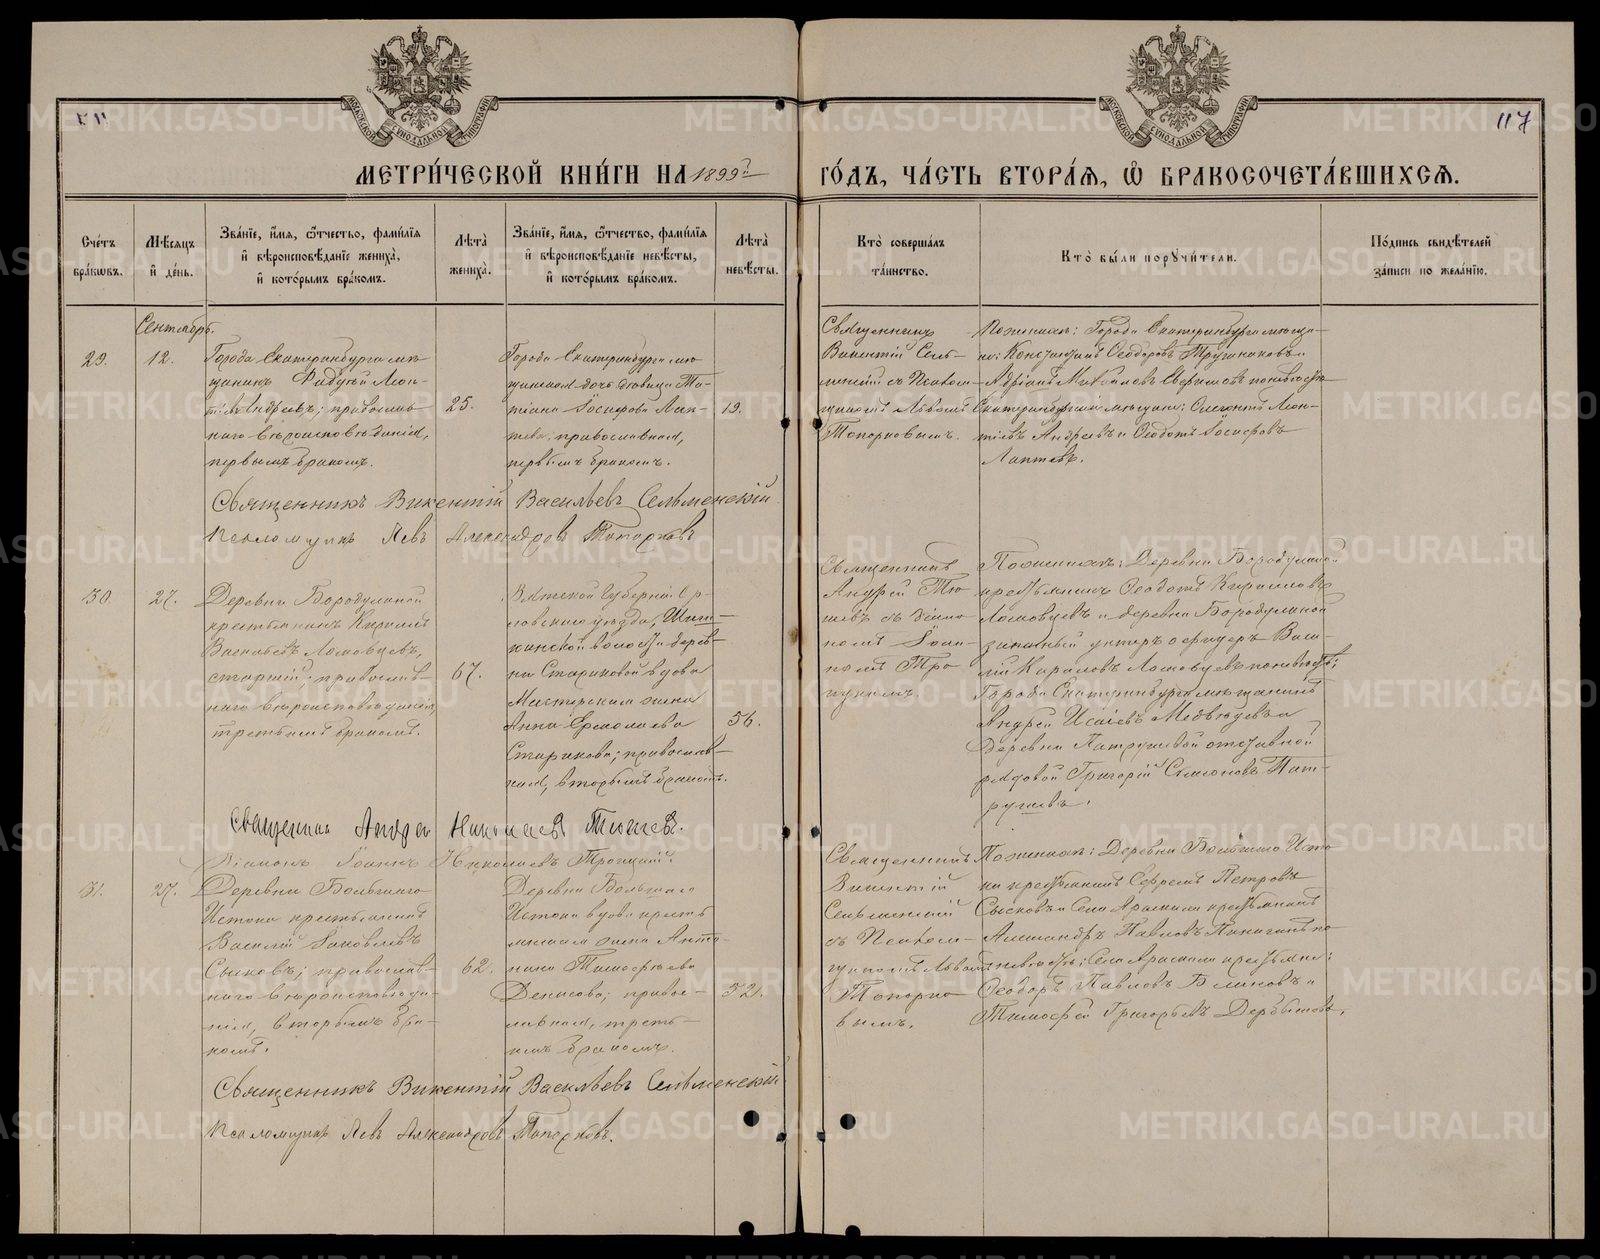 117
МОСКОВСКОЙ СѴНОДАЛЬНОЙ ТИПОГРАФІИ
МОСКОВСКОЙ СѴНОДАЛЬНОЙ ТИПОГРАФІИ
МЕТРИ́ЧЕСКОЙ КНИ́ГИ НА 1899й ГО́ДЪ, ЧА́СТЬ ВТОРА́Я, Ѡ БРАКОСОЧЕТА́ВШИХСЯ.
Сче́тъ
бра́ковъ.
Мѣ́сяцъ
и҆ де́нь.
Зва́нїе, и҆́мя, ѻ҆́тчество, фами́лїя
и҆ вѣроисповѣ́данїе жениха̀,
и҆ кото́рымъ бра́комъ.
Лѣта̀
жениха̀.
Зва́нїе, и҆́мя, ѻ҆́тчество, фами́лїя
и҆ вѣроисповѣ́данїе невѣ́сты,
и҆ кото́рымъ бра́комъ.
Лѣта̀
невѣ́сты.
Кто̀ соверша́лъ
та́инство.
Кто̀ бы́ли порꙋчи́тели.
По́дпись свидѣ́телей
за́писи по жела́нїю.
Сентябрь.
29.
12.
Города Екатеринбурга мѣ-
щанинъ Фаддей Леон-
тіевъ Андреевъ; православ-
наго вѣроисповѣданія,
первымъ бракомъ.
25.
Города Екатеринбурга мѣ-
щанская дочь девица Та-
тіана Іосифова Лап-
тева, православная,
первымъ бракомъ.
19.
Священникъ
Викентій Сельменскій съ Псаломщикомъ Львомъ
Топорковымъ.
По женихѣ: Города Екатеринбурга мѣща-
не: Константинъ Ѳеодоровъ Трушниковъ и
Адріанъ Михайловъ Сверчковъ по невѣстѣ
Екатеринбургскіе мѣщане: Леон-
тіевъ Андреевъ и Ѳеодотъ Іосифовъ
Лаптевъ.
Священникъ Викентій Васильевъ Сельменскій
Псаломщикъ Левъ Александровъ Топорковъ
30.
27.
Деревни Бородулиной
крестьянинъ Кириллъ
Васильевъ Ломовцевъ,
старшій; православ-
наго вѣроисповѣданія,
третьимъ бракомъ.
67.
Вятской Губерніи Ор-
ловскаго уѣзда,
волости дерев-
ни Стариковой вдова
жена
Анна Ермолаева
Старикова; православ-
ная, вторымъ бракомъ.
56.
Священникъ
Андрей Тю-
шевъ съ діако-
номъ Іоан-
номъ Тро-
ицкимъ.
По женихѣ: Деревни Бородулиной
крестьянинъ Ѳеодотъ Кирилловъ
Ломовцевъ и деревни Бородулиной
запасный унтеръ офицеръ Васи-
лій Карповъ Ломовцевъ по невѣстѣ:
Города Екатеринбурга мѣщанинъ
Андрей Исаіевъ Медвѣдевъ и
Деревни Патрушевой отставной
рядовой Григорій Симоновъ Пат-
рушевъ.
Священник Андрей Николаев Тюшев.
Діаконъ Іоаннъ Николаевъ Троицкій.
31.
27.
Деревни Большаго
Истока крестьянинъ
Василій Іаковлевъ
Сысковъ; православ-
наго вѣроисповѣда-
нія, вторымъ бра-
комъ.
62.
Деревни Большаго
Истока вдова кресть-
янская жена Анто-
нина Тимофеева
Денисова; право-
славная, треть-
имъ бракомъ.
52.
Священникъ
Викентій
Сельменскій
съ Псалом-
щикомъ Львомъ
Топорко-
вымъ.
По женихѣ: Деревни Большаго Исто-
ка крестьянинъ Ефремъ Петровъ
Сысковъ и Села Арамили крестьянинъ
Александръ Павловъ по
невѣстѣ: Села Арамили крестьяне:
Ѳеодоръ Павловъ Блиновъ и
Тимофей Григорьевъ Дербышевъ.
Священникъ Викентій Васильевъ Сельменскій
Псаломщикъ Левъ Александровъ Топорковъ.
METRIKI.GASO-URAL.RU